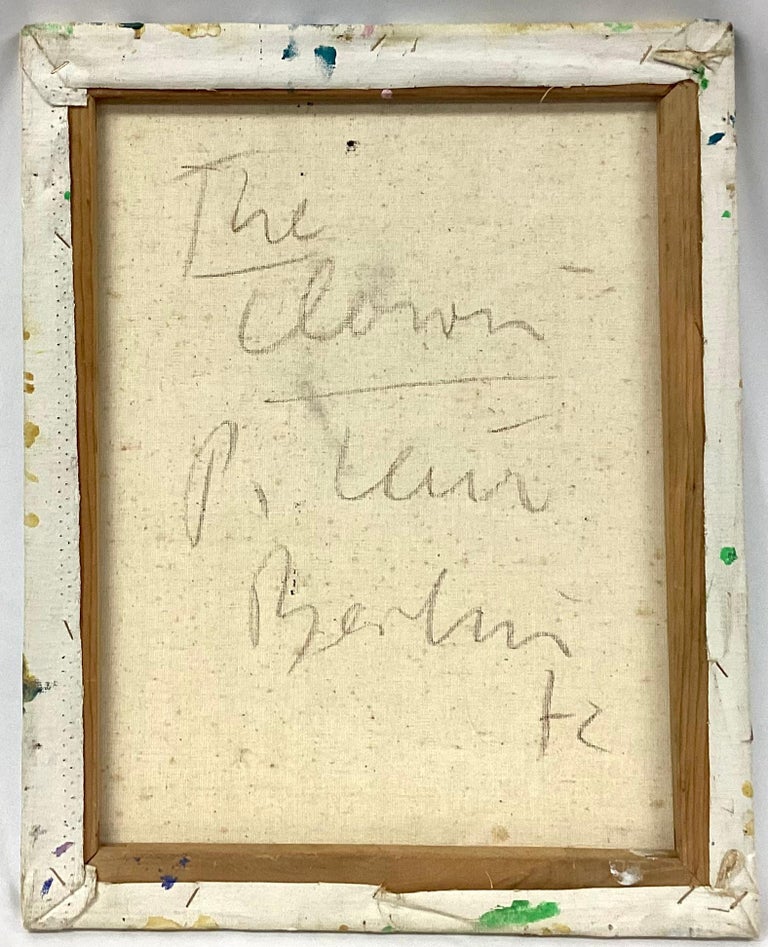 The
Clown
P.
Berlin
72